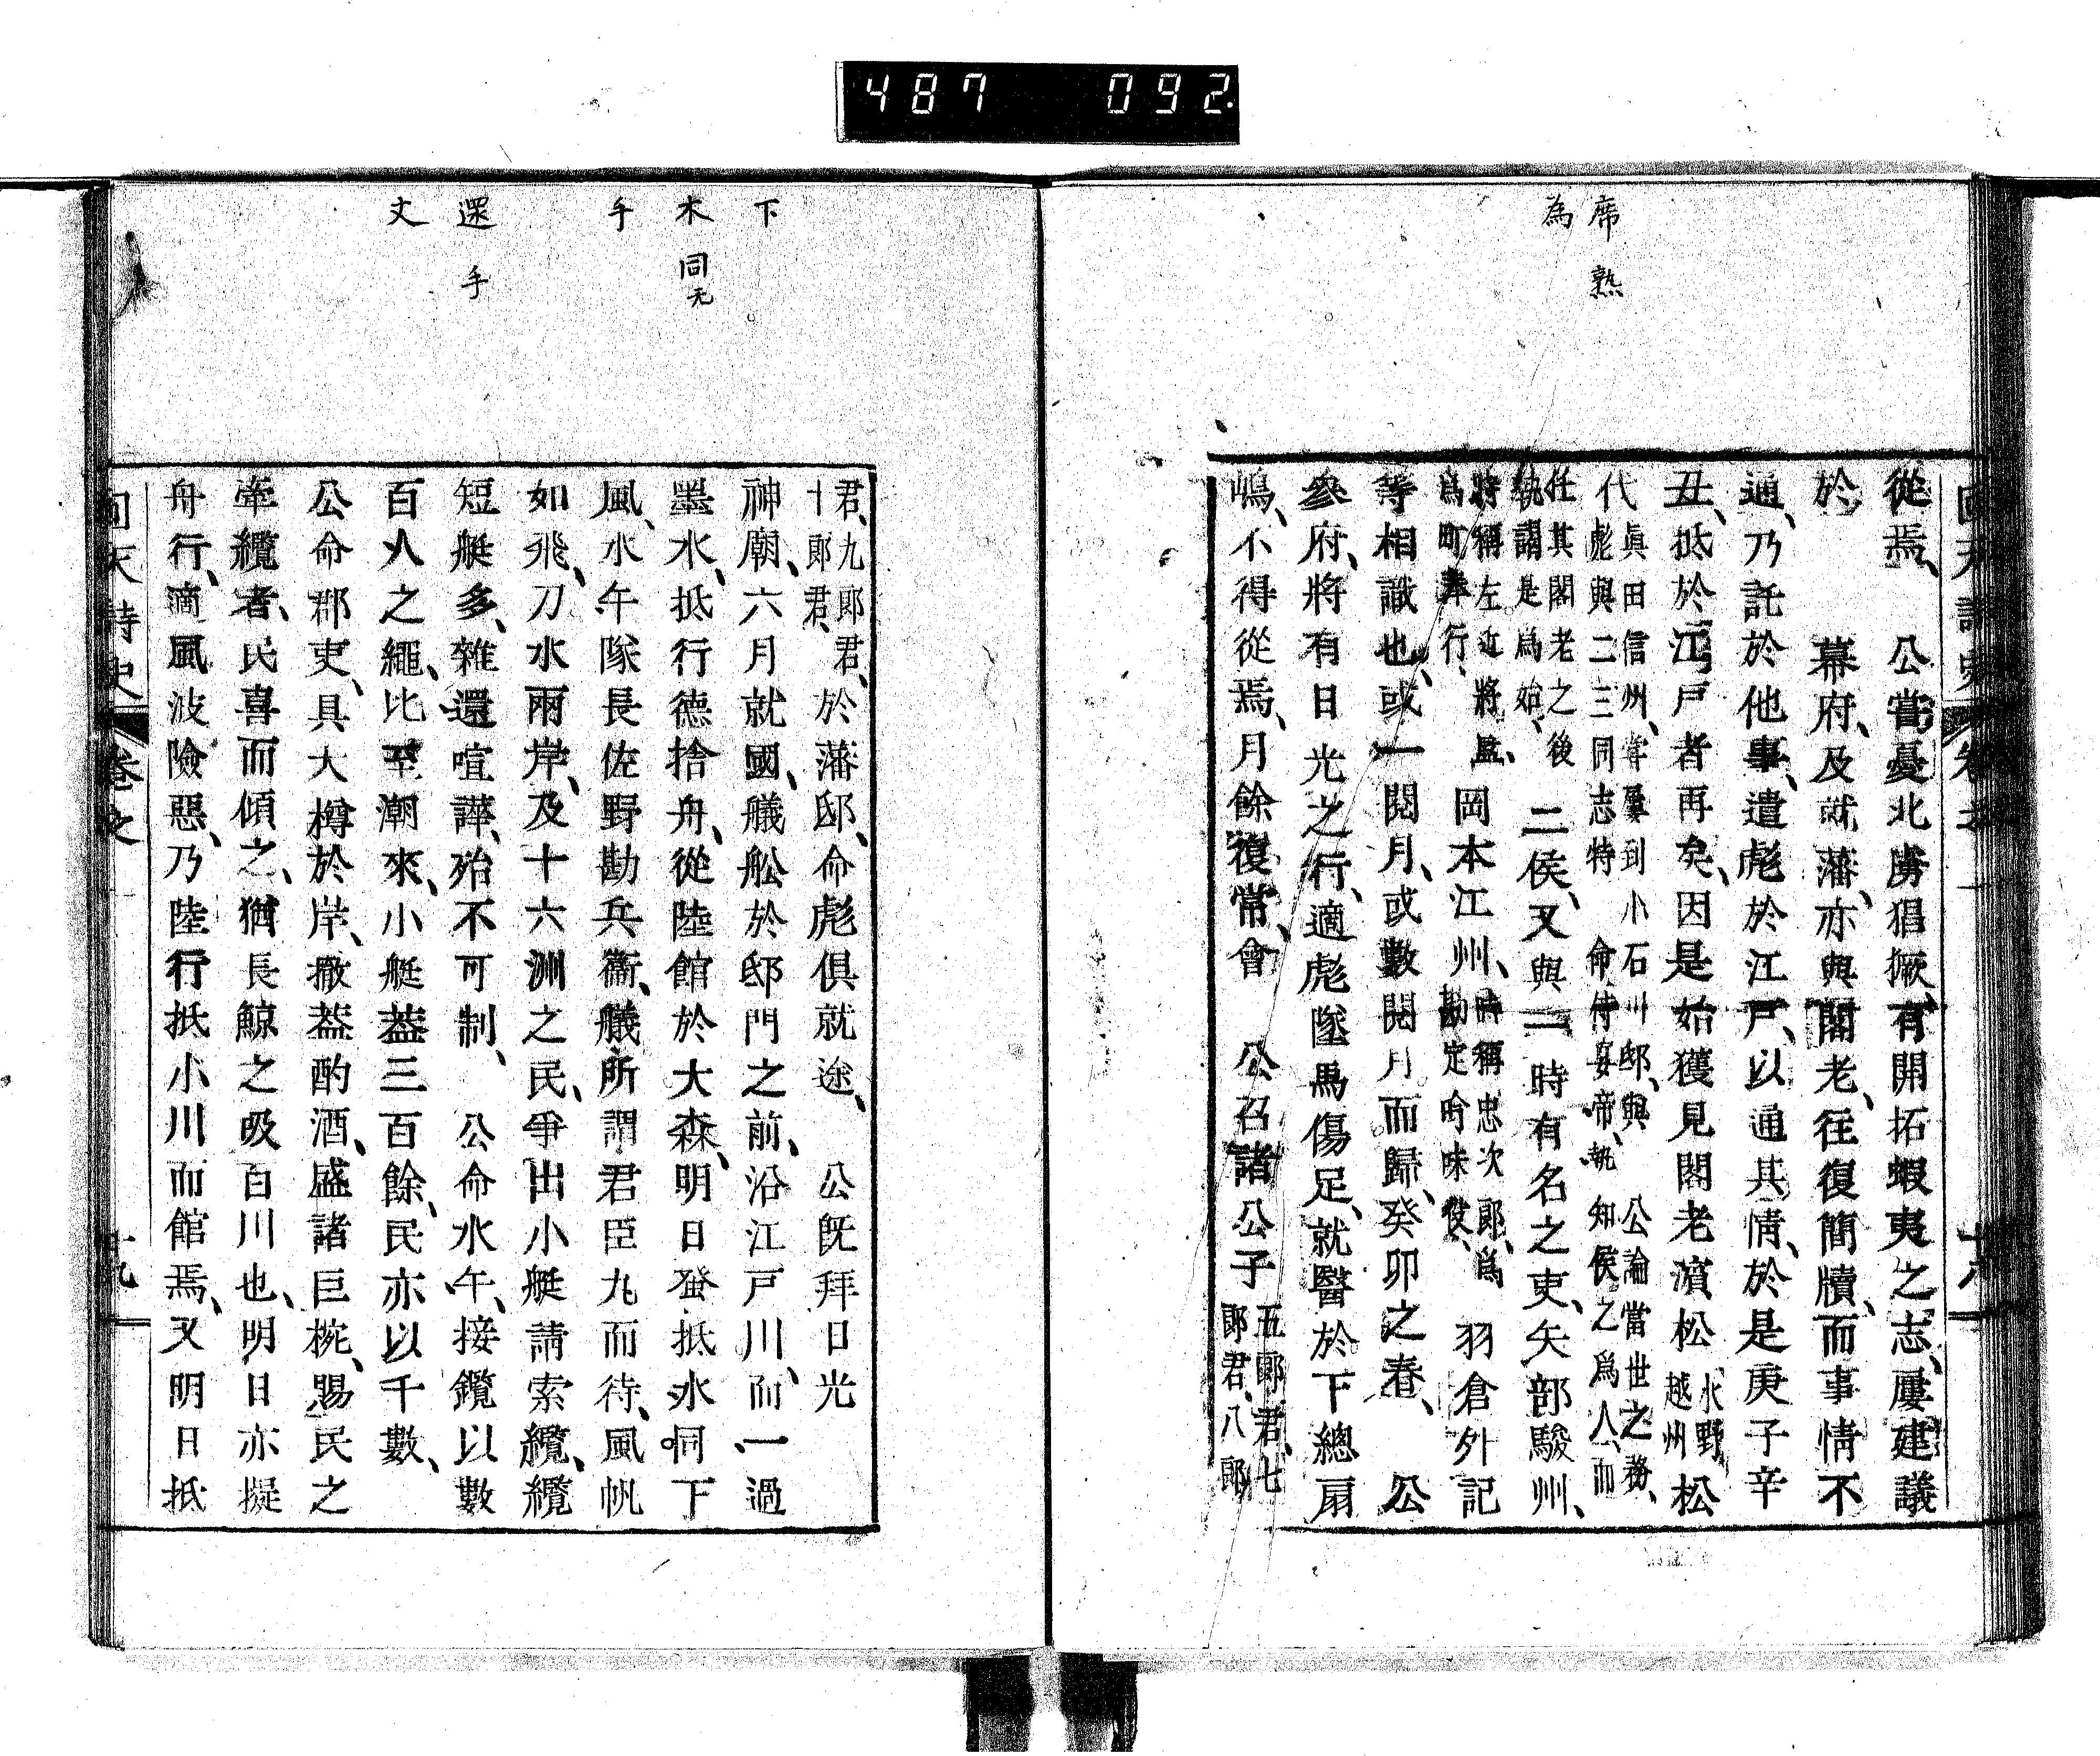 487 092
席 熟
為
從焉、 公嘗憂北虜猖獗、有開拓蝦夷之志、屢建議
於 幕府、及就藩、亦與閣老、往復簡牘、而事情不
通、乃託於他事、遣彪於江戸、以通其情、於是庚子辛
丑、抵於江戸者再矣、因是始獲見閣老濱松水野越州松
代眞田信州、嘗屢到小石川邸、與 公論當世之務、
彪與二三同志特 命侍宴帝、執知侯之爲人、而
任其閣老之後
執謂是爲始、二侯、又與一時有名之吏、矢部駿州、
時稱左近將監、
爲町奉行、岡本江州、時稱忠次郎、爲
勘定吟味役、羽倉外記
等相識也、或一閱月、或數閱月而歸、癸卯之春、 公
參府、將有日光之行、適彪墜馬傷足、就醫於下總扇
嶋、不得從焉、月餘復常、會 公召諸公子五郎君、七
郎君、八郎
下
木 同无
手
還 手
丈
君、九郎君、
十郎君、於藩邸、命彪俱就途、 公既拜日光
神廟、六月就國、艤舩於邸門之前、沿江戸川、而一過
墨水、抵行德捨舟、從陸館於大森、明日發抵水同下
風、水午隊長佐野勘兵衞、艤所謂君臣丸而待、風帆
如飛、刀水兩岸、及十六洲之民、爭出小艇請索纜、纜
短艇多、雜還喧譁、殆不可制、 公命水午、接纜以數
百人之繩、比至潮來、小艇蓋三百餘、民亦以千數、
公命郡吏、具大樽於岸、撒蓋酌酒、盛諸巨椀、賜民之
牽纜者、民喜而傾之、猶長鯨之吸百川也、明日亦擬
舟行、適風波險惡、乃陸行抵小川而館焉、又明日抵
回天詩史 卷之
十九